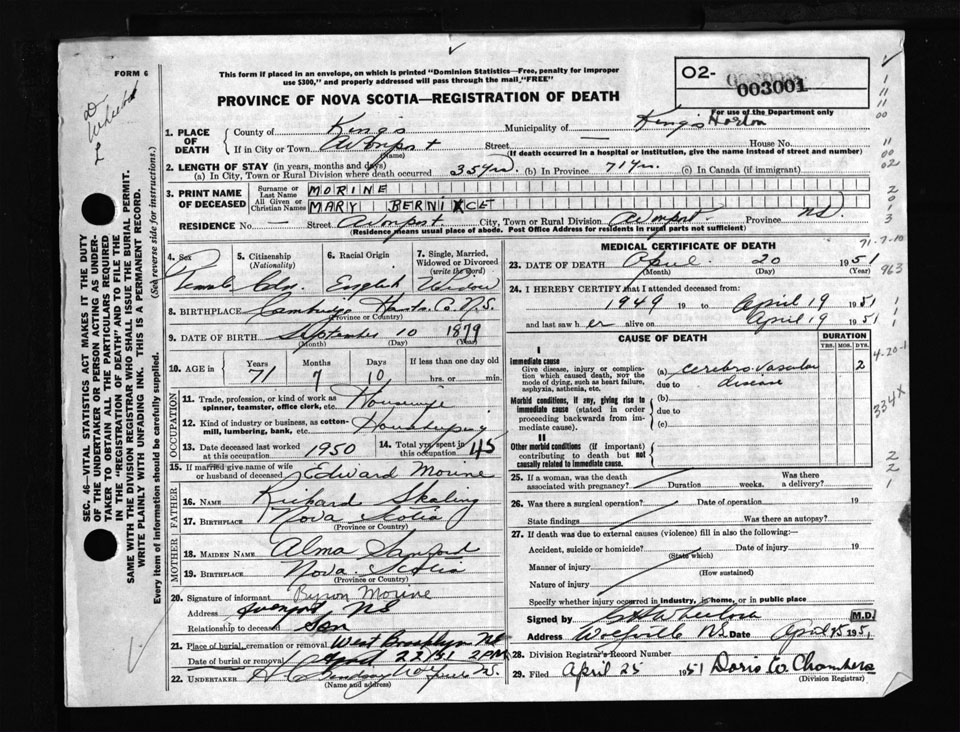 FORM 6
This form if placed in an envelope, on which is printed "Dominion Statistics—Free, penalty for improper use $300," and properly addressed will pass through the mail "FREE"
O2-
003001
For use of the Department only
PROVINCE OF NOVA SCOTIA—REGISTRATION OF DEATH
1. PLACE OF DEATH
County of King's
Municipality of King's Horton
If in City or Town Avonport
(Name)
Street —
House No.
(If death occurred in a hospital or institution, give the name instead of street and number)
2. LENGTH OF STAY (in years, months and days)
(a) In City, Town or Rural Division where death occurred 35 yrs. (b) In Province 71 yrs. (c) In Canada (if immigrant)
3. PRINT NAME OF DECEASED
Surname or Last Name MORINE
Given or Christian Names MARY BERNICE
RESIDENCE No. — Street Avonport City, Town or Rural Division Avonport Province NS
(Residence means usual place of abode. Post Office Address for residents in rural parts not sufficient)
4. Sex
Female
5. Citizenship (Nationality)
Cdn.
6. Racial Origin
English
7. Single, Married, Widowed or Divorced (write the word)
Widow
8. BIRTHPLACE Cambridge Hants Co. N.S.
(Province or Country)
9. DATE OF BIRTH September 10 1879
(Month) (Day) (Year)
10. AGE in
Years Months Days If less than one day old
71 7 10 hrs. or min.
OCCUPATION
11. Trade, profession, or kind of work as spinner, teamster, office clerk, etc. Housewife
12. Kind of industry or business, as cotton-mill, lumbering, bank, etc. Housekeeping
13. Date deceased last worked at this occupation 1950
14. Total yrs. spent in this occupation 45
15. If married give name of wife or husband of deceased Edward Morine
FATHER
16. NAME Richard Skaling
17. BIRTHPLACE Nova Scotia
(Province or Country)
MOTHER
18. MAIDEN NAME Alma Sanford
19. BIRTHPLACE Nova Scotia
(Province or Country)
20. Signature of informant Byron Morine
Address Avonport, NS
Relationship to deceased Son
21. Place of burial, cremation or removal West Brooklyn NS
Date of burial or removal April 22/51 2 PM
22. UNDERTAKER H C Lindsay N.S.
(Name and address)
MEDICAL CERTIFICATE OF DEATH
23. DATE OF DEATH April 20 1951
(Month) (Day) (Year)
24. I HEREBY CERTIFY that I attended deceased from:
1949 19 to April 19 1951
and last saw h er alive on April 19 1951
CAUSE OF DEATH
DURATION
YRS. MOS. DYS.
I
Immediate cause
Give disease, injury or complication which caused death, not the mode of dying, such as heart failure, asphyxia, asthenia, etc.
(a) cerebro-vascular 2
due to disease
Morbid conditions, if any, giving rise to immediate cause (stated in order proceeding backwards from immediate cause).
(b)
due to
(c)
II
Other morbid conditions (if important) contributing to death but not causally related to immediate cause.
25. If a woman, was the death associated with pregnancy? Duration weeks. Was there a delivery?
26. Was there a surgical operation? Date of operation 19
State findings Was there an autopsy?
27. If death was due to external causes (violence) fill in also the following:—
Accident, suicide or homicide? Date of injury 19
(State which)
Manner of injury
(How sustained)
Nature of injury
Specify whether injury occurred in industry, in home, or in public place
Signed by M.D.
Address Wolfville NS Date April 25 1951
28. Division Registrar's Record Number
29. Filed April 25 1951 Doris E. Chambers
(Division Registrar)
SEC. 46—VITAL STATISTICS ACT MAKES IT THE DUTY OF THE UNDERTAKER OR PERSON ACTING AS UNDERTAKER TO OBTAIN ALL THE PARTICULARS REQUIRED IN THE "REGISTRATION OF DEATH" AND TO FILE THE SAME WITH THE DIVISION REGISTRAR WHO SHALL ISSUE THE BURIAL PERMIT.
WRITE PLAINLY WITH UNFADING INK. THIS IS A PERMANENT RECORD.
Every item of information should be carefully supplied. (See reverse side for instructions.)
11
00
02
2
0
1
3
71-7-10
963
4-20-1
334X
2
2
1